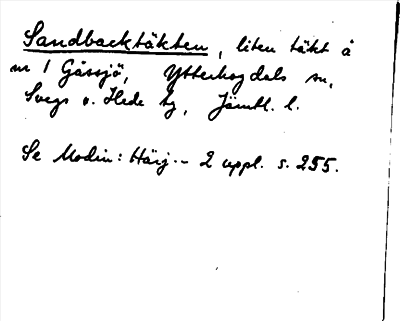 Sandbacktäkten, liten täkt å
nr 1 Gåssjö, Ytterhogdals sn,
Svegs o. Hede tg, Jämtl. l.
Se Modin: Härj. - 2 uppl. s. 255.